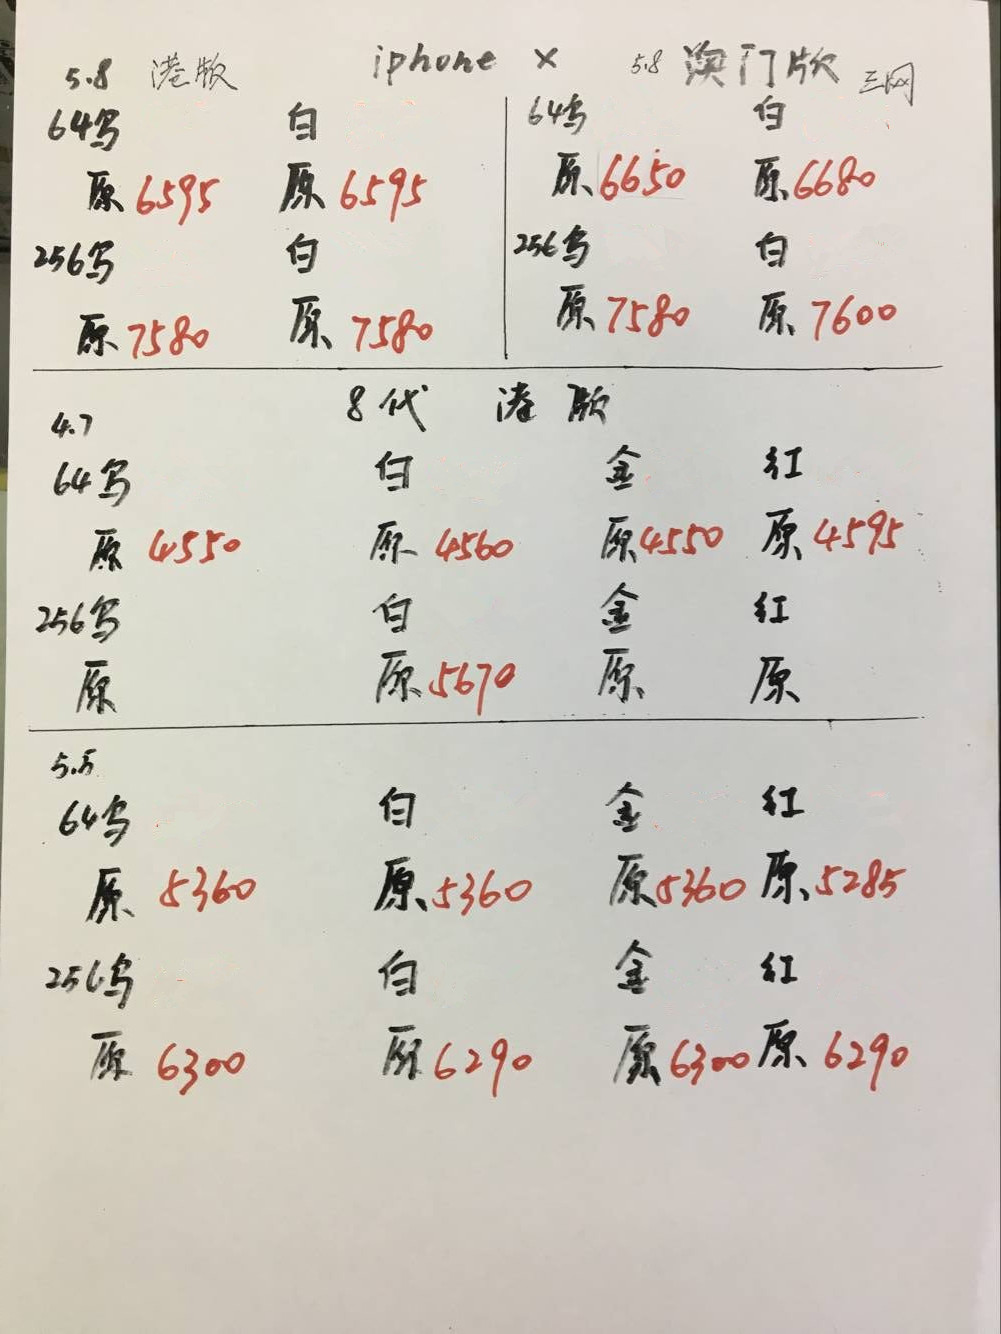 5.8 港版 iphone X 5.8 澳门版 三网
64乌 白 64乌 白
原 6595 原 6595 原 6650 原 6680
256乌 白 256乌 白
原 7580 原 7580 原 7580 原 7600
8代 港版
4.7
64乌 白 金 红
原 4550 原 4560 原 4550 原 4595
256乌 白 金 红
原 原 5670 原 原
5.5
64乌 白 金 红
原 5360 原 5360 原 5360 原 5285
256乌 白 金 红
原 6300 原 6290 原 6300 原 6290